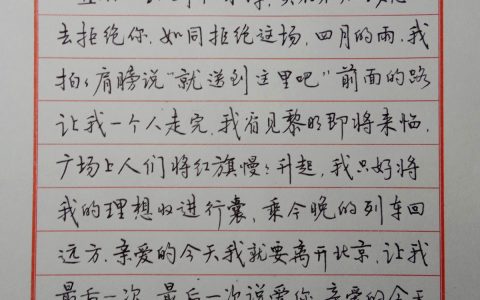 去拒绝你.如同拒绝这场.四月的雨.我
拍:肩膀说"就送到这里吧"前面的路
让我一个人走完.我看见黎明即将来临.
广场上人们将红旗慢:升起,我只好将
我的理想收进行囊,乘今晚的列车回
远方.亲爱的今天我就要离开北京,让我
最后一次 最后一次说爱你 亲爱的今天